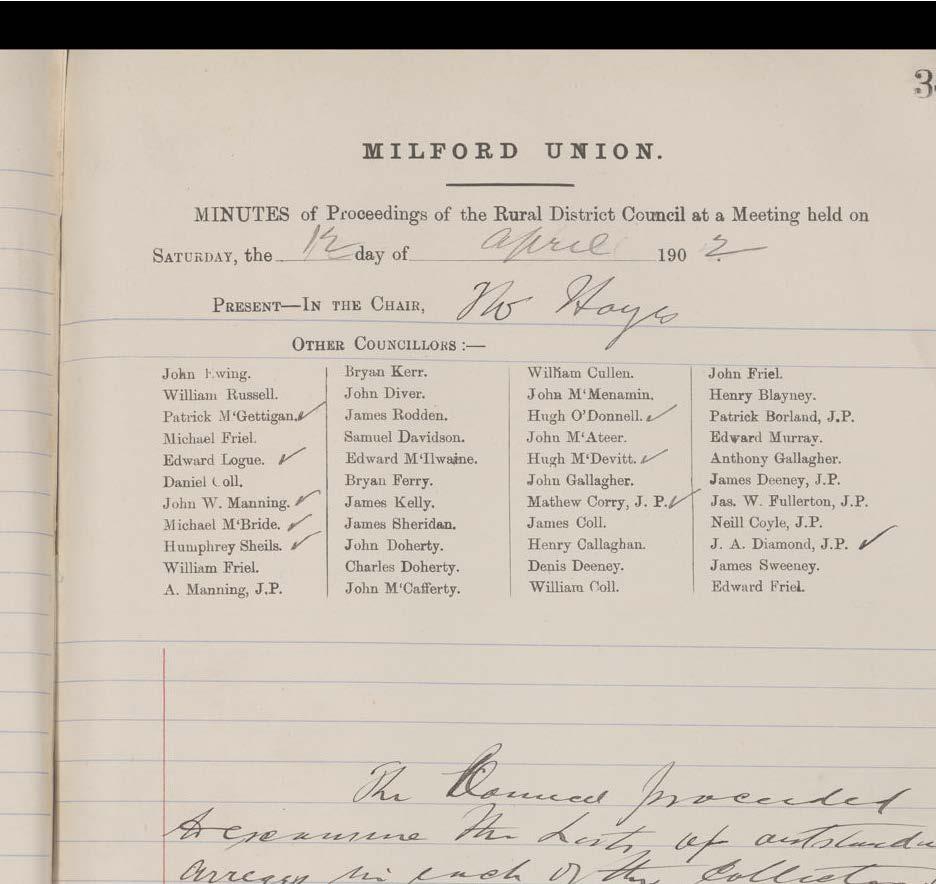 3
MILFORD UNION.
MINUTES of Proceedings of the Rural District Council at a Meeting held on
SATURDAY, the 12 day of April 1902
PRESENT—IN THE CHAIR, Hayes
OTHER COUNCILLORS :—
John Ewing.
William Russell.
Patrick M'Gettigan.
Michael Friel.
Edward Logue.
Daniel Coll.
John W. Manning.
Michael M'Bride.
Humphrey Sheils.
William Friel.
A. Manning, J.P.
Bryan Kerr.
John Diver.
James Rodden.
Samuel Davidson.
Edward M'Ilwaine.
Bryan Ferry.
James Kelly.
James Sheridan.
John Doherty.
Charles Doherty.
John M'Cafferty.
William Cullen.
John M'Menamin.
Hugh O'Donnell.
John M'Ateer.
Hugh M'Devitt.
John Gallagher.
Mathew Corry, J. P.
James Coll.
Henry Callaghan.
Denis Deeney.
William Coll.
John Friel.
Henry Blayney.
Patrick Borland, J.P.
Edward Murray.
Anthony Gallagher.
James Deeney, J.P.
Jas. W. Fullerton, J.P.
Neill Coyle, J.P.
J. A. Diamond, J.P.
James Sweeney.
Edward Friel.
The Council proceeded
to examine the Lists of outstandi
arrears in each of the Collector